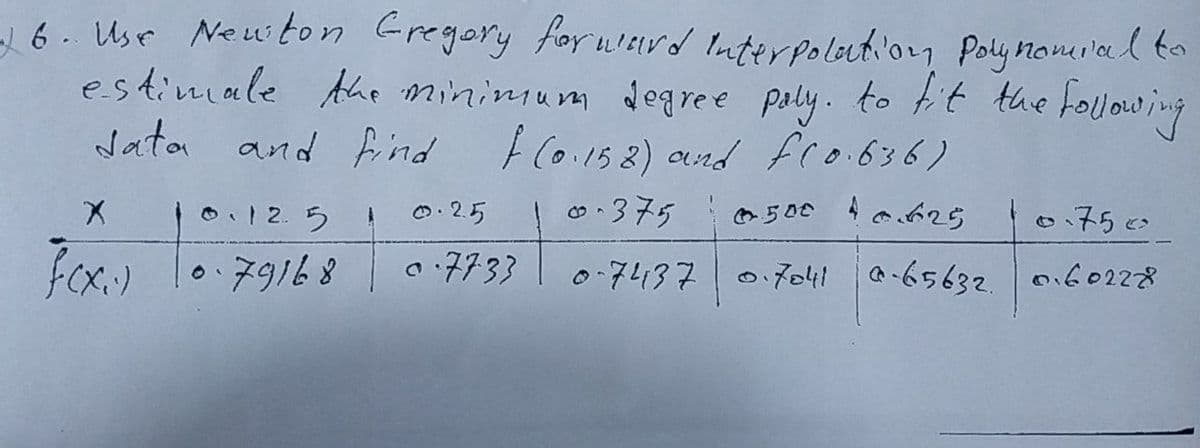 6. Use Newton Gregory forward Interpolation Polynomial to
estimate the minimum degree poly. to fit the following
data and find f(0.158) and f(0.636)
X | 0.125 | 0.25 | 0.375 | 0.500 | 0.625 | 0.750
f(xi) | 0.79168 | 0.7733 | 0.7437 | 0.7041 | 0.65632 | 0.60228